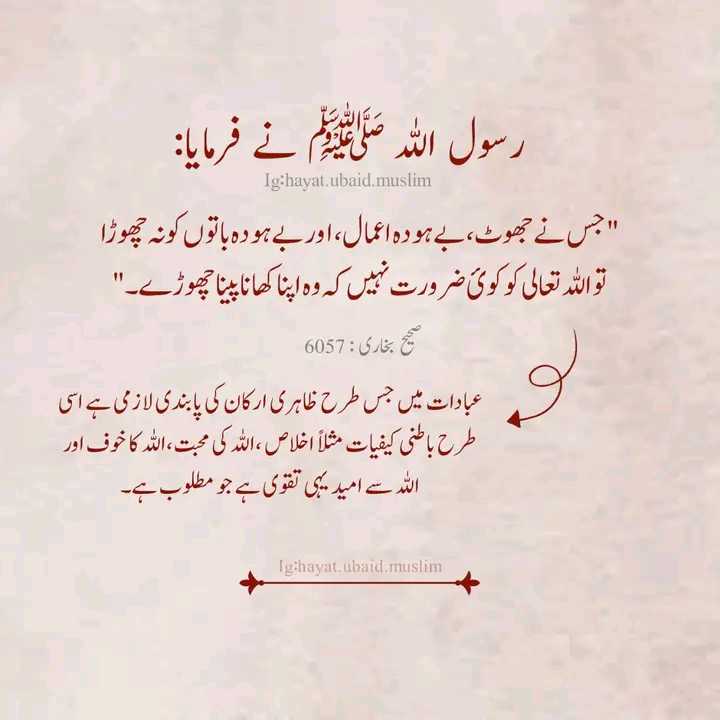 رسول اللہ ﷺ نے فرمایا:
Ig:hayat.ubaid.muslim
"جس نے جھوٹ، بے ہودہ اعمال، اور بے ہودہ باتوں کو نہ چھوڑا
تو اللہ تعالی کو کوئ ضرورت نہیں کہ وہ اپنا کھانا پینا چھوڑے۔"
صحیح بخاری : 6057
عبادات میں جس طرح ظاہری ارکان کی پابندی لازمی ہے اسی
طرح باطنی کیفیات مثلاً اخلاص ،اللہ کی محبت ،اللہ کا خوف اور
اللہ سے امید یہی تقوی ہے جو مطلوب ہے۔
Ig:hayat.ubaid.muslim